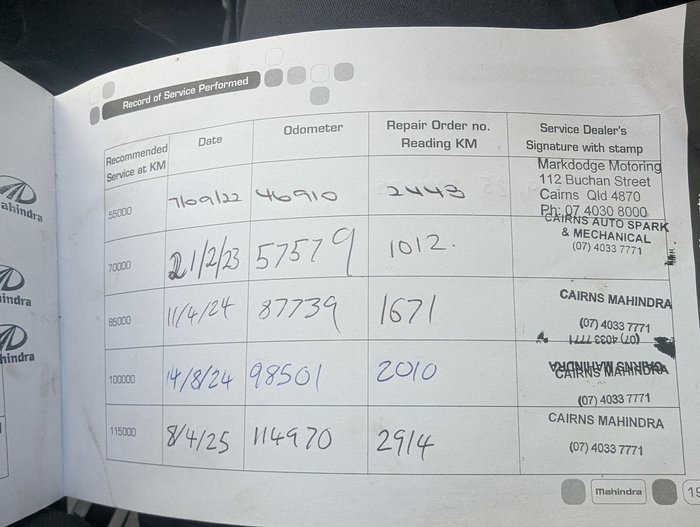 Record of Service Performed
Recommended Service at KM | Date | Odometer | Repair Order no. Reading KM | Service Dealer's Signature with stamp
55000 | 7/09/22 | 46910 | 2443 | Markdodge Motoring
112 Buchan Street
Cairns Qld 4870
Ph: 07 4030 8000
70000 | 21/2/23 | 57579 | 1012. | CAIRNS AUTO SPARK
& MECHANICAL
(07) 4033 7771
85000 | 11/4/24 | 87739 | 1671 | CAIRNS MAHINDRA
(07) 4033 7771
(07) 4033 7771
CAIRNS MAHINDRA
100000 | 14/8/24 | 98501 | 2010 | CAIRNS MAHINDRA
(07) 4033 7771
115000 | 8/4/25 | 114970 | 2914 | CAIRNS MAHINDRA
(07) 4033 7771
Mahindra
ahindra
indra
hindra